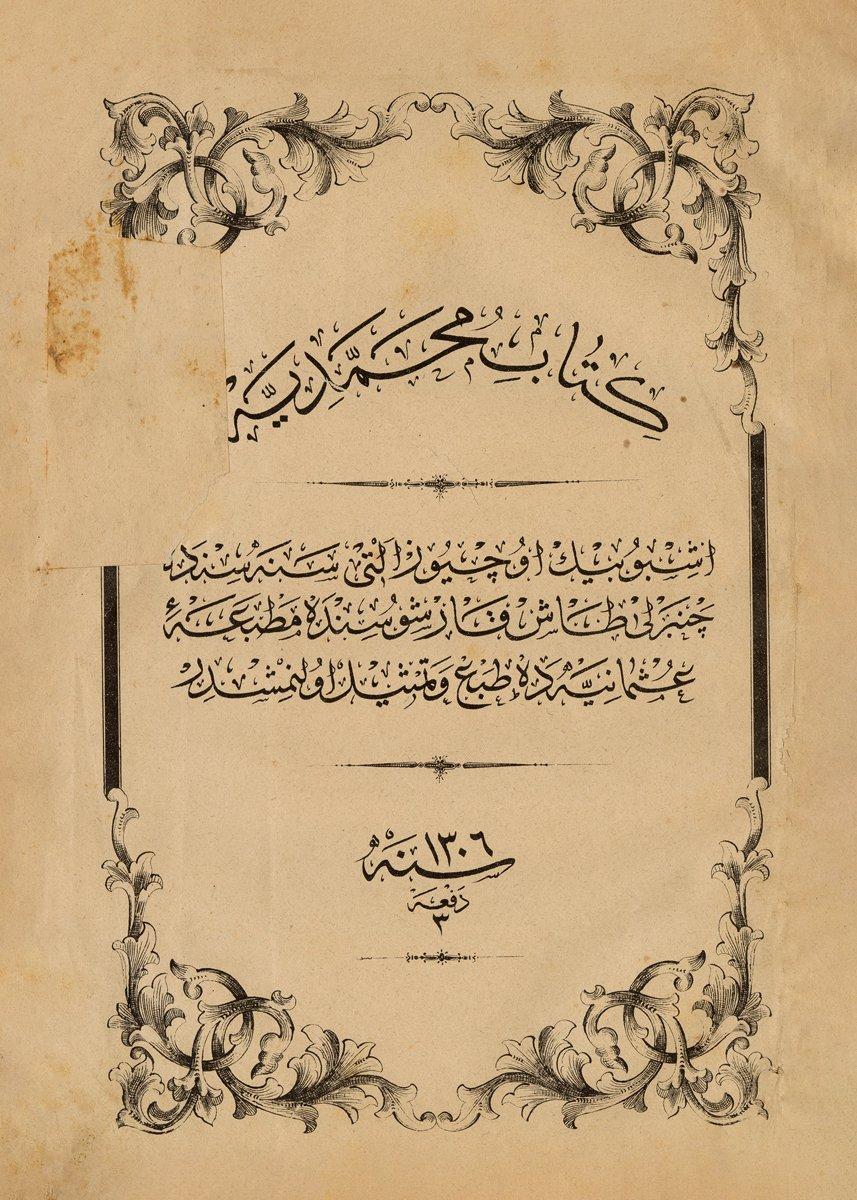 كِتَابِ مُحَمَّدِيَّه
اشبو بيك اوچيوز التى سنه سنده
چنبرلى طاش قارشوسنده مطبعهٔ
عثمانيه ده طبع و تمثيل اولنمشدر
سنه ١٣٠٦
دفعه
٣